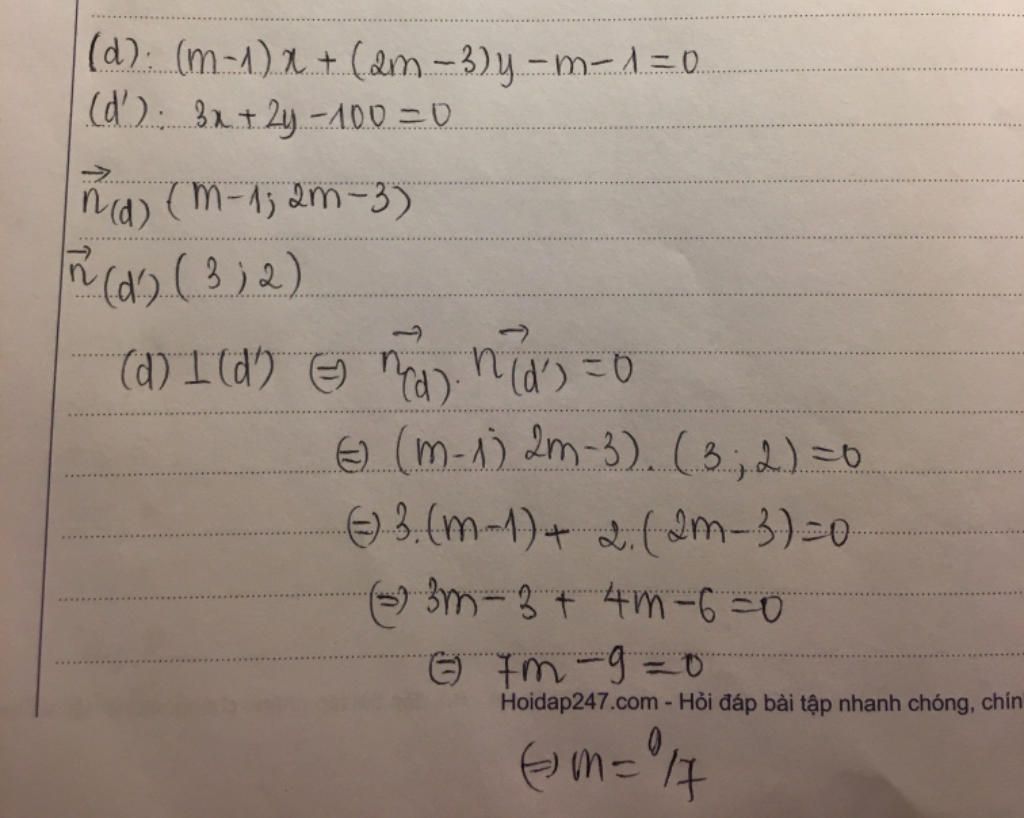 (d): (m-1)x + (2m-3)y - m - 1 = 0
(d'): 3x + 2y - 100 = 0
n⃗(d) (m-1; 2m-3)
n⃗(d') (3; 2)
(d) ⊥ (d') ⇔ n⃗(d) . n⃗(d') = 0
⇔ (m-1; 2m-3). (3; 2) = 0
⇔ 3.(m-1) + 2.(2m-3) = 0
⇔ 3m - 3 + 4m - 6 = 0
⇔ 7m - 9 = 0
Hoidap247.com - Hỏi đáp bài tập nhanh chóng, chín
⇔ m = 9/7